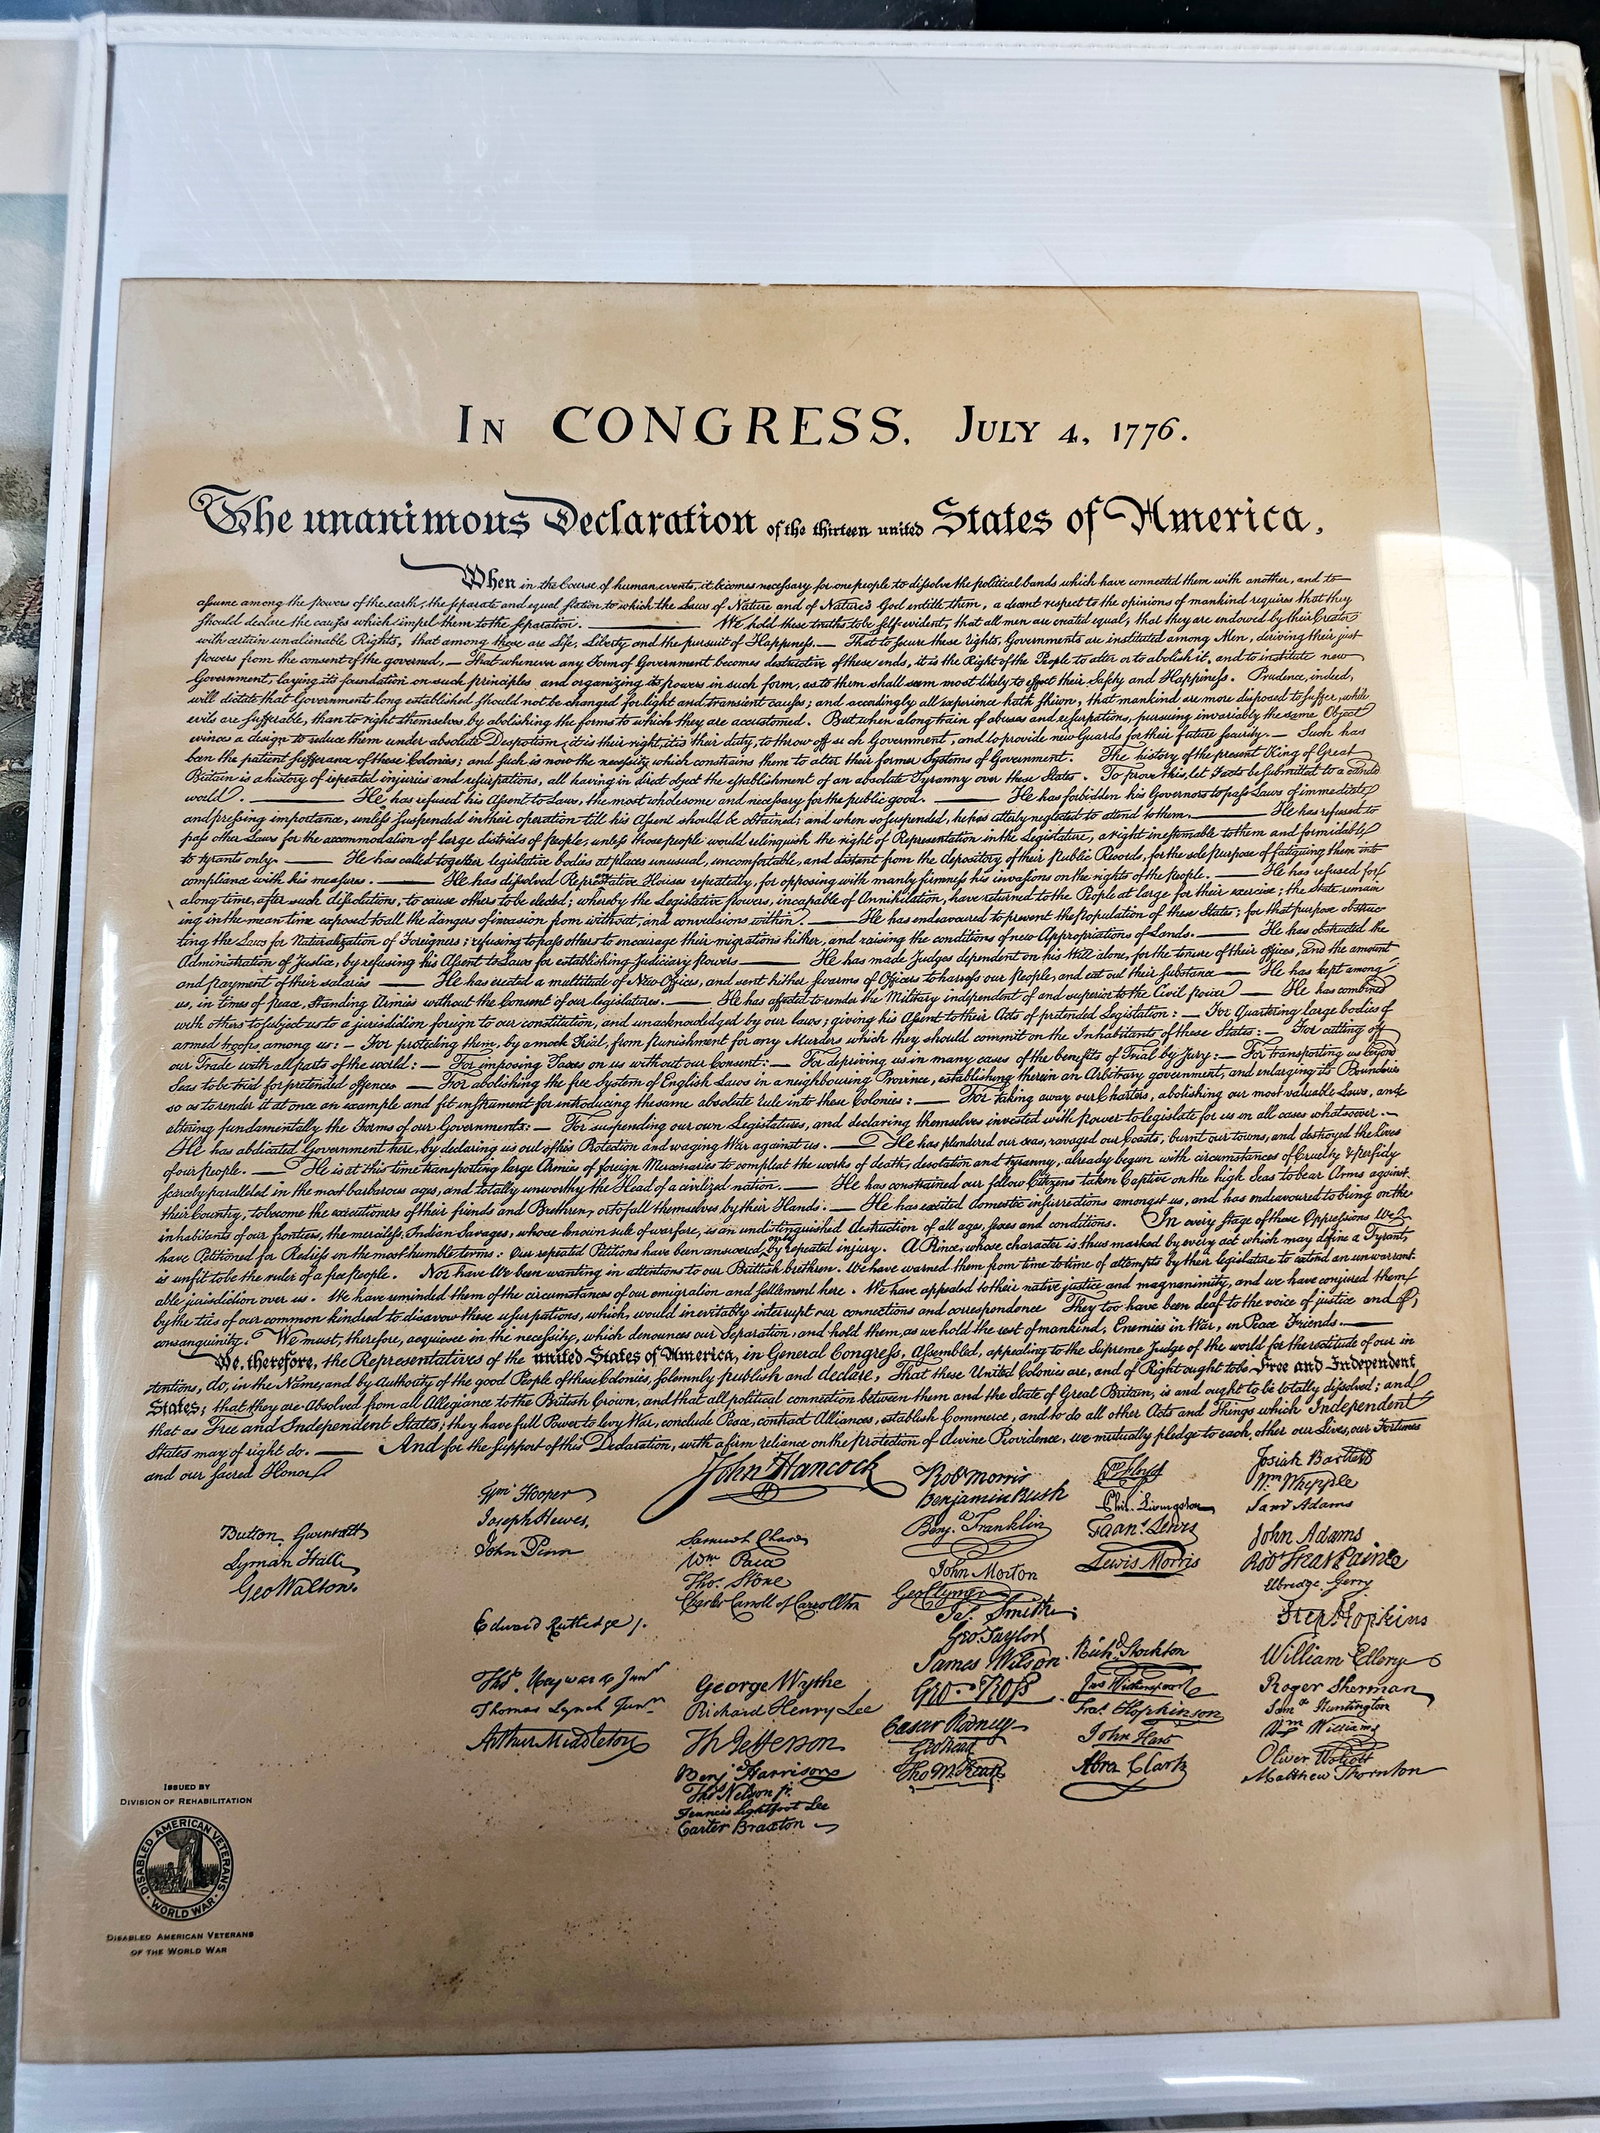 In CONGRESS, July 4, 1776.
The unanimous Declaration of the thirteen united States of America,
When in the Course of human events, it becomes necessary for one people to dissolve the political bands which have connected them with another, and to
assume among the powers of the earth, the separate and equal station to which the Laws of Nature and of Nature's God entitle them, a decent respect to the opinions of mankind requires that they
should declare the causes which impel them to the separation. We hold these truths to be self-evident, that all men are created equal, that they are endowed by their Creator
with certain unalienable Rights, that among these are Life, Liberty and the pursuit of Happiness.— That to secure these rights, Governments are instituted among Men, deriving their just
powers from the consent of the governed,— That whenever any Form of Government becomes destructive of these ends, it is the Right of the People to alter or to abolish it, and to institute new
Government, laying its foundation on such principles and organizing its powers in such form, as to them shall seem most likely to effect their Safety and Happiness. Prudence, indeed,
will dictate that Governments long established should not be changed for light and transient causes; and accordingly all experience hath shewn, that mankind are more disposed to suffer, while
evils are sufferable, than to right themselves by abolishing the forms to which they are accustomed. But when a long train of abuses and usurpations, pursuing invariably the same Object
evinces a design to reduce them under absolute Despotism, it is their right, it is their duty, to throw off such Government, and to provide new Guards for their future security.— Such has
been the patient sufferance of these Colonies; and such is now the necessity which constrains them to alter their former Systems of Government. The history of the present King of Great
Britain is a history of repeated injuries and usurpations, all having in direct object the establishment of an absolute Tyranny over these States. To prove this, let Facts be submitted to a candid
world. — He has refused his Assent to Laws, the most wholesome and necessary for the public good. — He has forbidden his Governors to pass Laws of immediate
and pressing importance, unless suspended in their operation till his Assent should be obtained; and when so suspended, he has utterly neglected to attend to them. — He has refused to
pass other Laws for the accommodation of large districts of people, unless those people would relinquish the right of Representation in the Legislature, a right inestimable to them and formidable
to tyrants only. — He has called together legislative bodies at places unusual, uncomfortable, and distant from the depository of their Public Records, for the sole purpose of fatiguing them into
compliance with his measures. — He has dissolved Representative Houses repeatedly, for opposing with manly firmness his invasions on the rights of the people. — He has refused for
a long time, after such dissolutions, to cause others to be elected; whereby the Legislative powers, incapable of Annihilation, have returned to the People at large for their exercise; the State remain
ing in the mean time exposed to all the dangers of invasion from without, and convulsions within. — He has endeavoured to prevent the Population of these States; for that purpose obstruc
ting the Laws for Naturalization of Foreigners; refusing to pass others to encourage their migrations hither, and raising the conditions of new Appropriations of Lands. — He has obstructed the
Administration of Justice, by refusing his Assent to Laws for establishing Judiciary powers — He has made Judges dependent on his Will alone, for the tenure of their offices, and the amount
and payment of their salaries — He has erected a multitude of New Offices, and sent hither swarms of Officers to harrass our people, and eat out their substance — He has kept among
us, in times of peace, Standing Armies without the Consent of our legislatures. — He has affected to render the Military independent of and superior to the Civil power — He has combined
with others to subject us to a jurisdiction foreign to our constitution, and unacknowledged by our laws; giving his Assent to their Acts of pretended Legislation: — For Quartering large bodies of
armed troops among us: — For protecting them, by a mock Trial, from punishment for any Murders which they should commit on the Inhabitants of these States: — For cutting off
our Trade with all parts of the world: — For imposing Taxes on us without our Consent: — For depriving us in many cases of the benefits of Trial by Jury: — For transporting us beyond
Seas to be tried for pretended offences — For abolishing the free System of English Laws in a neighbouring Province, establishing therein an Arbitrary government, and enlarging its Boundaries
so as to render it at once an example and fit instrument for introducing the same absolute rule into these Colonies: — For taking away our Charters, abolishing our most valuable Laws, and
altering fundamentally the Forms of our Governments: — For suspending our own Legislatures, and declaring themselves invested with power to legislate for us in all cases whatsoever. —
He has abdicated Government here, by declaring us out of his Protection and waging War against us. — He has plundered our seas, ravaged our Coasts, burnt our towns, and destroyed the lives
of our people. — He is at this time transporting large Armies of foreign Mercenaries to compleat the works of death, desolation and tyranny, already begun with circumstances of Cruelty & perfidy
scarcely paralleled in the most barbarous ages, and totally unworthy the Head of a civilized nation. — He has constrained our fellow Citizens taken Captive on the high Seas to bear Arms against
their Country, to become the executioners of their friends and Brethren, or to fall themselves by their Hands. — He has excited domestic insurrections amongst us, and has endeavoured to bring on the
inhabitants of our frontiers, the merciless Indian Savages, whose known rule of warfare, is an undistinguished destruction of all ages, sexes and conditions. In every stage of these Oppressions We
have Petitioned for Redress in the most humble terms: Our repeated Petitions have been answered only by repeated injury. A Prince, whose character is thus marked by every act which may define a Tyrant,
is unfit to be the ruler of a free people. Nor have We been wanting in attentions to our Brittish brethren. We have warned them from time to time of attempts by their legislature to extend an unwarrant
able jurisdiction over us. We have reminded them of the circumstances of our emigration and settlement here. We have appealed to their native justice and magnanimity, and we have conjured them
by the ties of our common kindred to disavow these usurpations, which, would inevitably interrupt our connections and correspondence They too have been deaf to the voice of justice and of
consanguinity. We must, therefore, acquiesce in the necessity, which denounces our Separation, and hold them, as we hold the rest of mankind, Enemies in War, in Peace Friends. —
We, therefore, the Representatives of the united States of America, in General Congress, Assembled, appealing to the Supreme Judge of the world for the rectitude of our in
tentions, do, in the Name, and by Authority of the good People of these Colonies, solemnly publish and declare, That these United Colonies are, and of Right ought to be Free and Independent
States; that they are Absolved from all Allegiance to the British Crown, and that all political connection between them and the State of Great Britain, is and ought to be totally dissolved; and
that as Free and Independent States, they have full Power to levy War, conclude Peace, contract Alliances, establish Commerce, and to do all other Acts and Things which Independent
States may of right do. — And for the support of this Declaration, with a firm reliance on the protection of divine Providence, we mutually pledge to each other our Lives, our Fortunes
and our sacred Honor.
Button Gwinnett
Lyman Hall
Geo Walton.
Wm Hooper
Joseph Hewes,
John Penn
Edward Rutledge /.
Thos Heyward Junr
Thomas Lynch Junr
Arthur Middleton
John Hancock
Samuel Chase
Wm Paca
Thos Stone
Charles Carroll of Carrollton
George Wythe
Richard Henry Lee
Th Jefferson
Benj Harrison
Thos Nelson jr.
Francis Lightfoot Lee
Carter Braxton
Robt Morris
Benjamin Rush
Benja Franklin
John Morton
Geo Clymer
Jas Smith
Geo. Taylor
James Wilson
Geo. Ross
Caesar Rodney
Geo Read
Tho M:Kean
Wm Floyd
Phil. Livingston
Frans Lewis
Lewis Morris
Richd Stockton
Jno Witherspoon
Fras Hopkinson
John Hart
Abra Clark
Josiah Bartlett
Wm Whipple
Saml Adams
John Adams
Robt Treat Paine
Elbridge Gerry
Step Hopkins
William Ellery
Roger Sherman
Saml Huntington
Wm Williams
Oliver Wolcott
Matthew Thornton
Issued by
Division of Rehabilitation
DISABLED AMERICAN VETERANS
WORLD WAR
Disabled American Veterans
of the World War